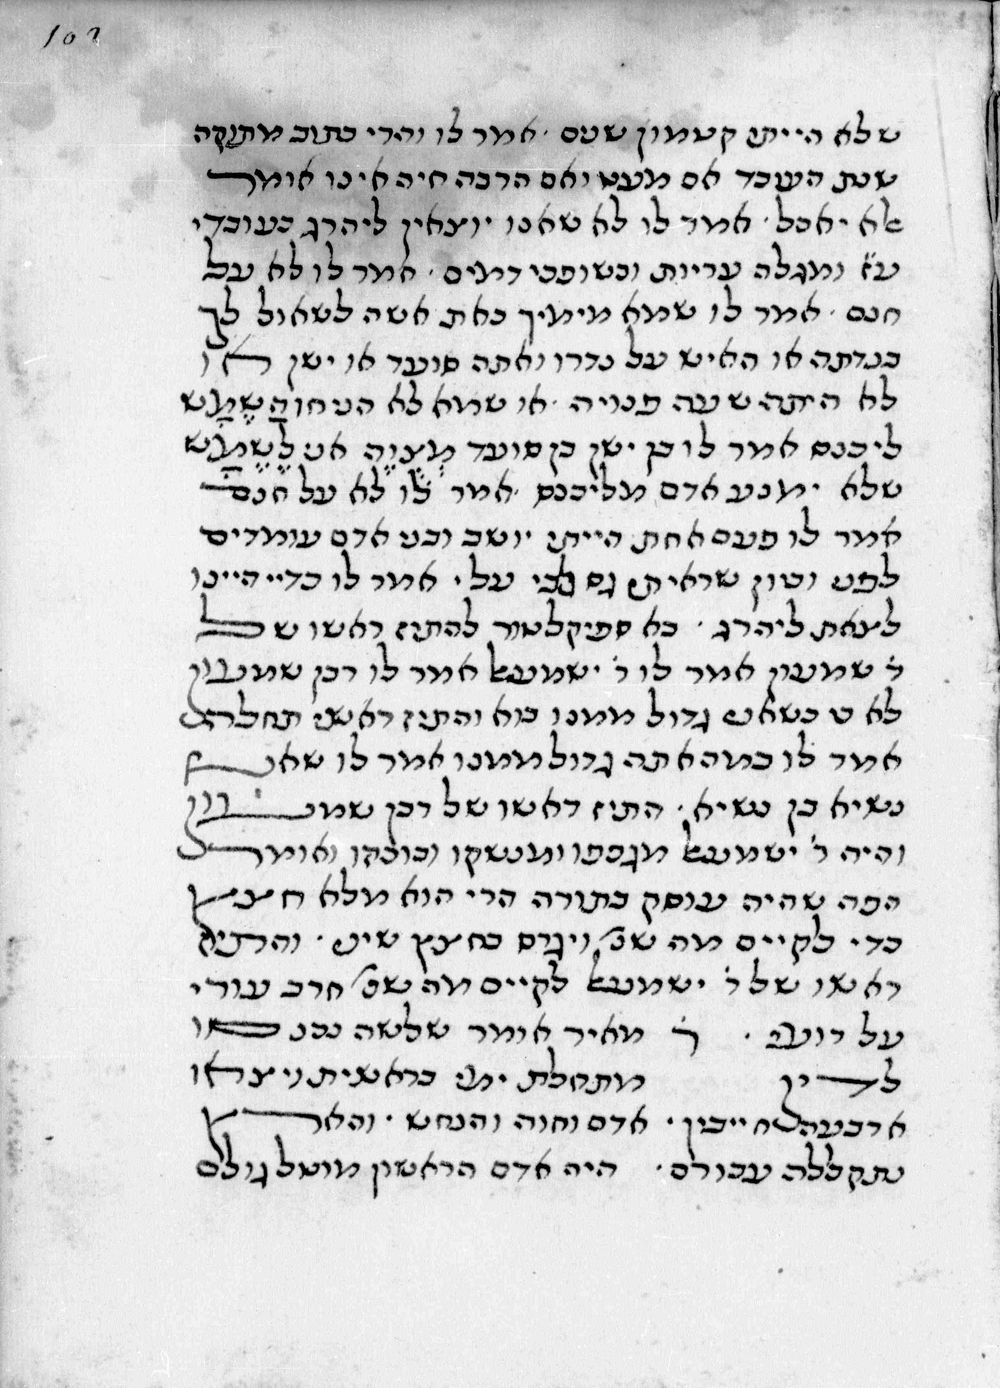 102
שלא הייתי קטמון שעם · אמר לו והרי כתוב מתוקה
שנת העובד אם מעט ואם הרבה חיה אינו אומר
לא יאכל · אמר לו לא שאנו יוצאין ליהרג כעובדי
ע״ז ומגלה עריות וכשופכי דמים · אמר לו לא על
חנם · אמר לו שמא מימיך באת אשה לשאול לך
בנדתה או האיש על נדרו ואתה סועד או ישן או
לא היתה שעה פנויה · או שמא לא הניחו השמש
ליכנס אמר לו בן ישן בן סועד מצוה אני לשמש
שלא ימנע אדם מליכנס · אמר לו לא על חנם
אמר לו פעם אחת הייתי יושב ובני אדם עומדים
לפני וכיון שראיתי גס לבי עלי · אמר לו כדיי היינו
לצאת ליהרג · בא ספיקלטור להתיז ראשו של
ר׳ שמעון אמר לו ר׳ ישמעאל אמר לו רבן שמעון
לא כי כשאני גדול ממנו בוא והתיז ראשי תחלה
אמר לו כמה אתה גדול ממנו אמר לו שאני
נשיא בן נשיא · התיז ראשו של רבן שמעון
והיה ר׳ ישמעאל מגפפו ומנשקו ובוכקו ואומר
הפה שהיה עוסק בתורה הרי הוא מלא חצץ
כדי לקיים מה שנ׳ ויגרס בחצץ שיני · והתיז
ראשו של ר׳ ישמעאל לקיים מה שנ׳ חרב עורי
על רועי · ר׳ מאיר אומר שלשה נכנסו
לדין מתחלת ימי בראשית ויצאו
ארבעה חייבין · אדם וחוה והנחש · והארץ
נתקללה עבורם · היה אדם הראשון מוטל גולם